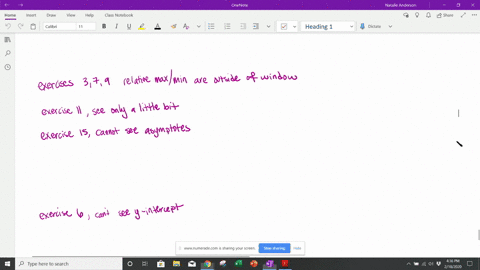 OneNote
Natalie Anderson
Home Insert Draw View Help Class Notebook
Share
Calibri 11 B I U A Heading 1 Dictate
exercises 3, 7, 9 relative max/min are outside of window
exercise 11, see only a little bit
exercise 15, cannot see asymptotes
exercise 6, can't see y-intercept
www.numerade.com is sharing your screen. Stop sharing Hide
Type here to search